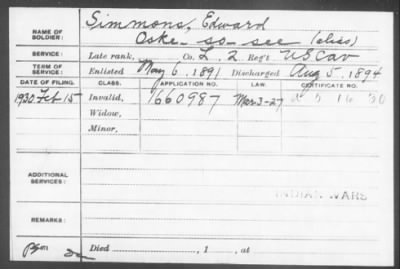 NAME OF SOLDIER: Simmons, Edward
Oske-so-see (alias)
SERVICE: Late rank, Co. L. 2 Reg't US Cav
TERM OF SERVICE: Enlisted May 6, 1891 Discharged Aug 5, 1894
DATE OF FILING. CLASS. APPLICATION NO. LAW. CERTIFICATE NO.
1930 Feb 15 Invalid, 1660987 Mar 3-27
Widow,
Minor,
ADDITIONAL SERVICES:
INDIAN WARS
REMARKS:
Died , 1 , at